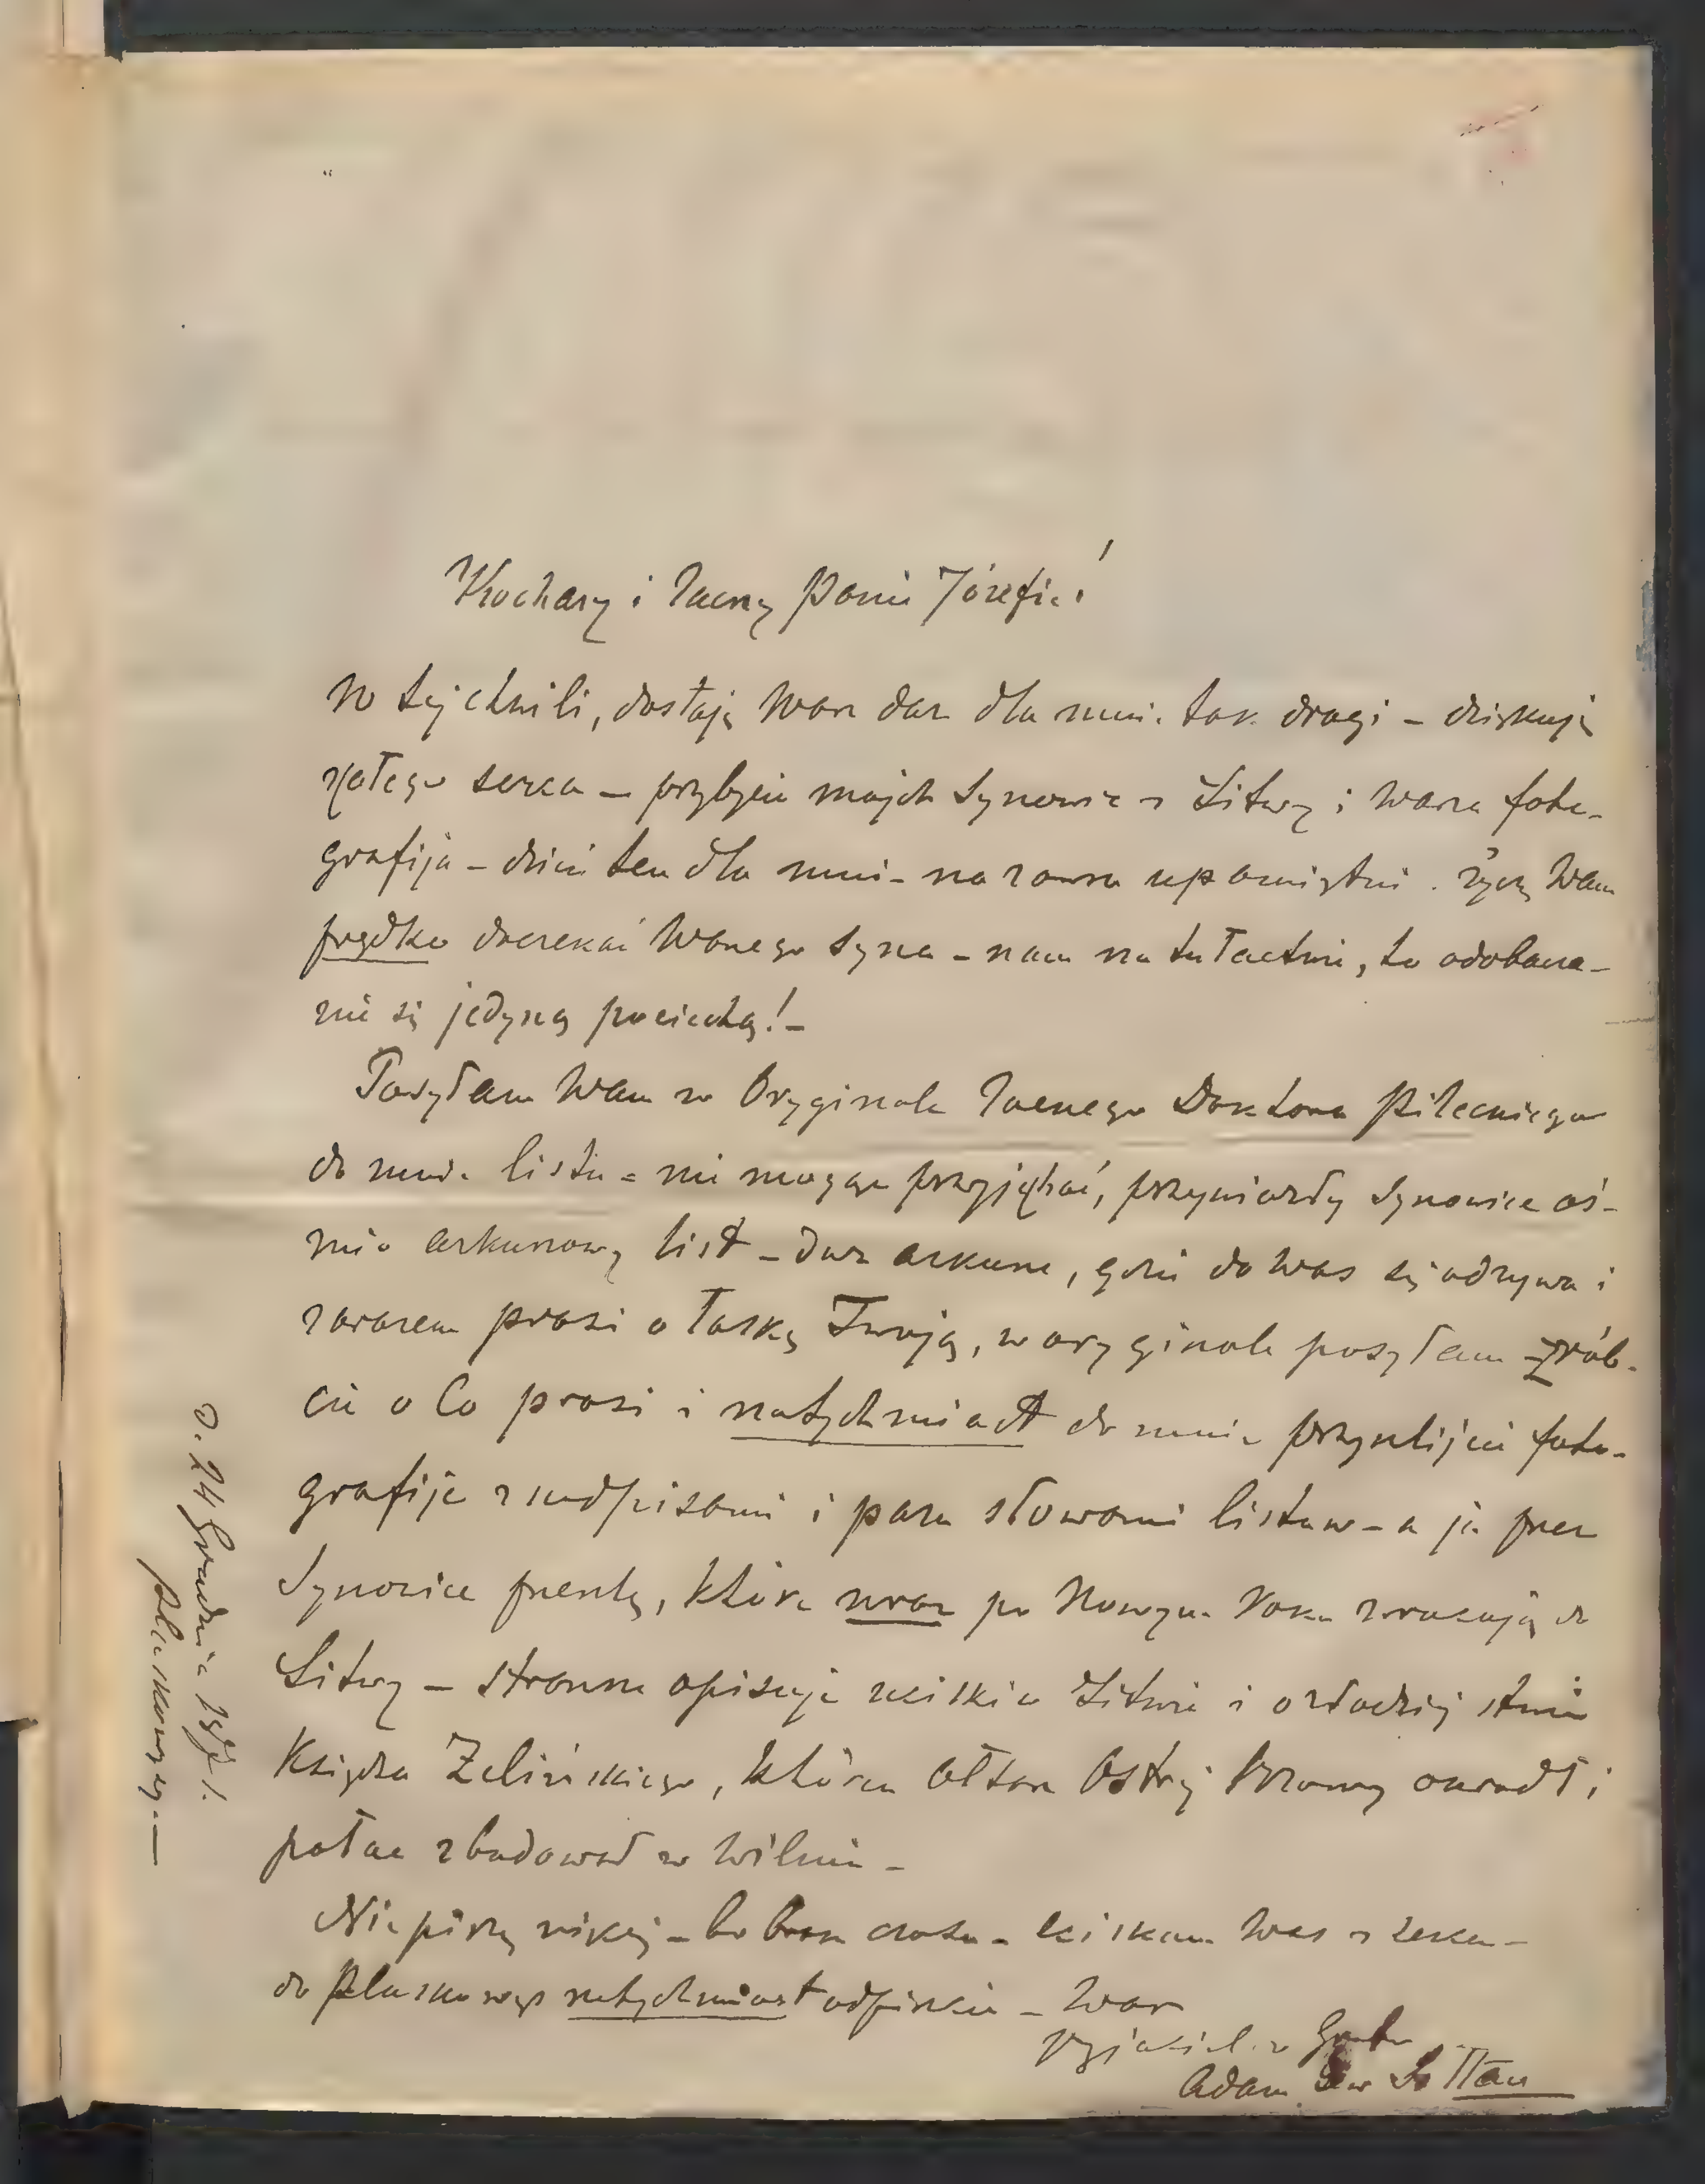 Kochany i Zacny Panie Józefie!
W tej chwili, dostaję Wasz dar dla mnie tak drogi – dziękuję
z całego serca – przybycie mojch Synowic z Litwy i Wasza foto-
grafija – dzień ten dla mnie – na zawsze upamiętni. Życzę Wam
prędko doczekać Waszego Syna – nam na tułactwie, to odobacze-
nie się jedyną pociechą! –
Posyłam Wam w Oryginale Zacnego Doktora Pileckiego
do mnie listu – nie mogąc przyjechać, przywiozły Synowice oś-
mio arkuszowy list – dwa arkusze, gdzie do Was się odzywa i
zarazem prosi o łaskę Twoją, w oryginale posyłam – zrób-
cie o Co prosi i natychmiast do mnie przyszlijcie foto-
grafije z podpisami i parą słowami listów – a ja przez
Synowice prześlę, które zaraz po Nowym Roku wracają do
Litwy – straszne opisuje uciski w Litwie i o złodziejstwie
Księdza Żelińskiego, który Ołtarz Ostrej Bramy okradł i
pałac zbudował w Wilnie –
Nie piszę więcej – bo brak czasu – ściskam Was z serca –
do Pluskowęs natychmiast odpiszcie – Wasz
przyjaciel
Adam Lew Sołtan
D. 24 Grudnia
Pluskowęsy –